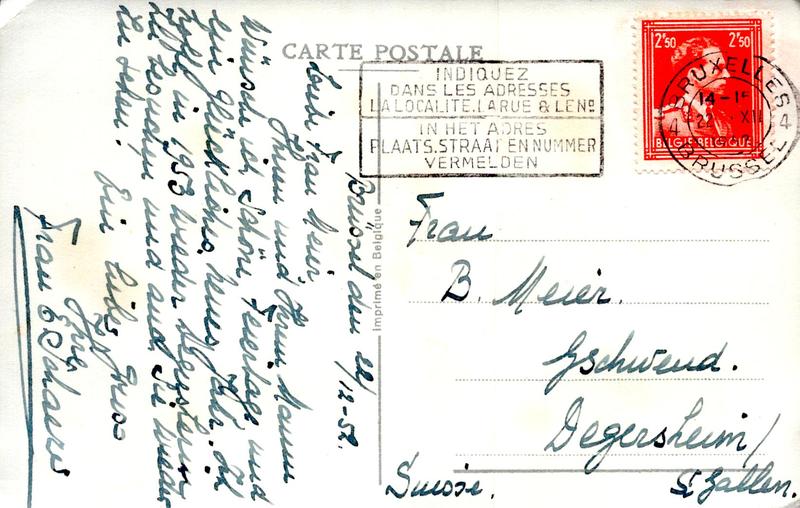 CARTE POSTALE
INDIQUEZ
DANS LES ADRESSES
LA LOCALITE, LA RUE & LE Nº
IN HET ADRES
PLAATS, STRAAT EN NUMMER
VERMELDEN
2F50 2F50
BELGIE-BELGIQUE
BRUXELLES
4 4
14-15
22 XII
BRUSSEL
Imprimé en Belgique
Brüssel den 22/12-52.
Liebe Frau Meier,
Ihnen und Ihrem Manne
Wünsche ich Schöne Feiertage und
ein glückliches neues Jahr. Ich
hoffe in 1953 wieder Degersheim
zu besuchen und auch Sie wieder
zu sehen.
Ein liebe Gruss
Ihre
Frau E
Frau
B. Meier.
Gschwend.
Degersheim/
St Gallen.
Suisse.